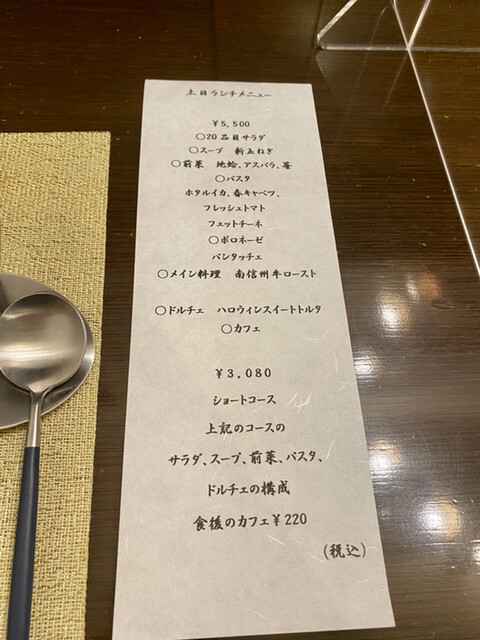 土日ランチメニュー
¥5,500
○20品目サラダ
○スープ 新玉ねぎ
○前菜 地蛤、アスパラ、苺
○パスタ
ホタルイカ、春キャベツ、
フレッシュトマト
フェットチーネ
○ボロネーゼ
パンタッチェ
○メイン料理 南信州牛ロースト
○ドルチェ ハロウィンスイートトルタ
○カフェ
¥3,080
ショートコース
上記のコースの
サラダ、スープ、前菜、パスタ、
ドルチェの構成
食後のカフェ¥220
(税込)